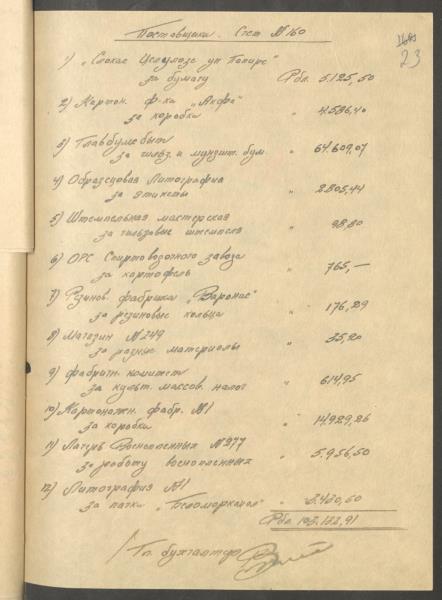 Поставщики. Счет №160
23
1) „Слокас Целулозе ун Папирс"
за бумагу Рбл. 5.125,50
2) Картон. ф-ка „Акфа"
за коробки " 4.586,40
3) Главбумсбыт
за гильз. и мундшт. бум. " 64.609,07
4) Образцовая Литография
за этикеты " 2.805,44
5) Штемпельная мастерская
за гильзовые штемпеля " 98,80
6) ОРС Спиртоводочного завода
за картофель " 765,—
7) Резинов. фабрика „Варонис"
за резиновые кольца " 176,29
8) Магазин №249
за разные материалы " 35,20
9) Фабричн. комитет
за культ. массов. налог " 614,95
10) Картонажн. фабр. №1
за коробки " 14.929,26
11) Лагерь Военнопленных №277
за работу военнопленных " 5.956,50
12) Литография №1
за пачки „Беломорканал" " 3.430,50
Рбл. 103.132,91
Гл. бухгалтер